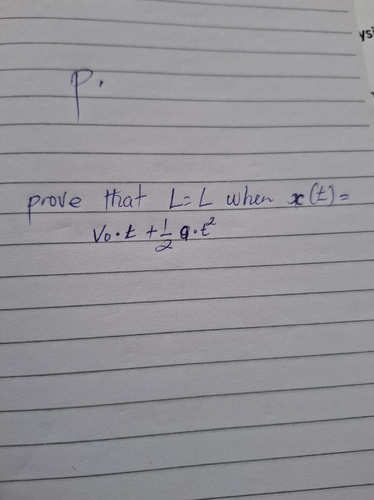 p.
prove that L=L when x(t)=
V₀·t + 1/2 a·t²